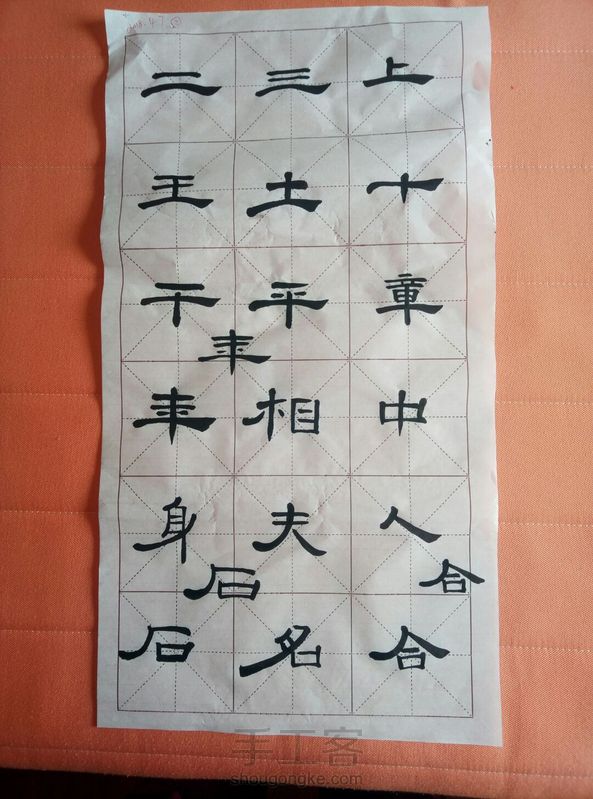 4.7
二三上
王土十
干平童
年
年相中
身夫人
石合
石名合
手工客
shougongke.com